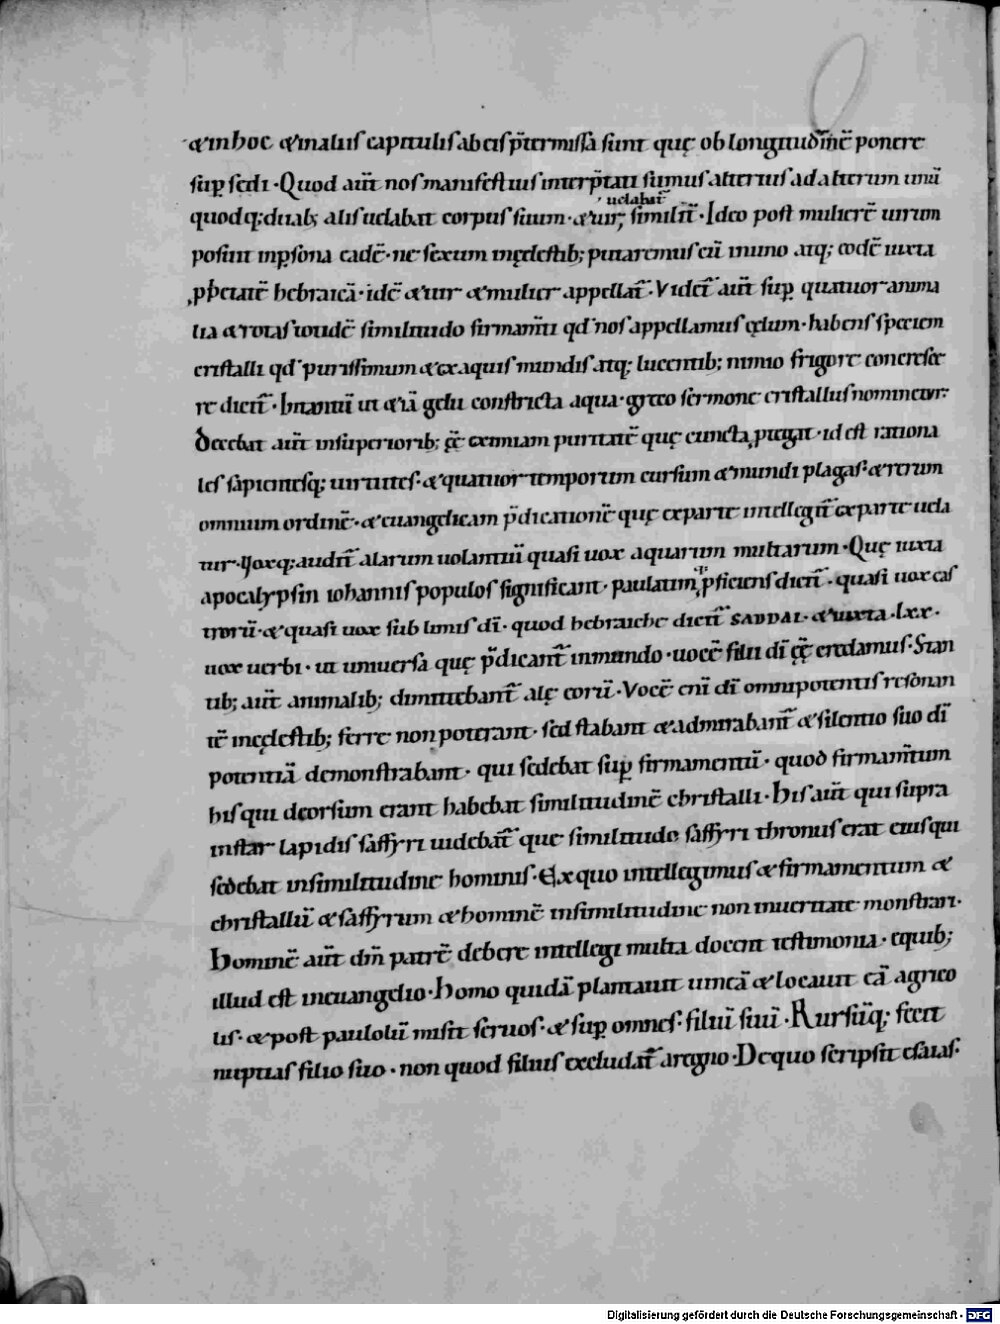 &inhoc &inaliis capitulis ab eis p̄termissa sunt quę ob longitudinē ponere
sup̱sedi · Quod aūt nos manifestius interp̄tati sumus alterius ad alterum unū
uelabat̄
quodq; duab; alis uelabat corpus suum · & uir; similit̄ · Ideo post mulierē uirum
posuit inp̱sona eadē · ne sexum incęlestib; putaremus cū in uno atq; eodē iuxta
p̱p̱rietatē hebraicā · idē & uir & mulier appellat̄ · Videt̄ aūt sup̱ quatuor anima
lia & rotas itoidē similitudo firmam̄ti qđ nos appellamus cęlum · habens speciem
cristalli qđ purissimum & ex aquis mundis atq; lucentib; nimio frigore concresce
re dicit̄ · Intantū ut & iā gelu constricta aqua · greco sermone cristallus nominetur ·
Decebat aūt insuperiorib; ęē eximiam puritatē quę cuncta p̱tegat · id est rationa
les sapientesq; uirtutes · & quatuor temporum cursum & mundi plagas · & rerum
omnium ordinē · & euangelicam p̄dicationē quę ex parte intellegit̄ ex parte uela
tur · Voxq; audit̄ alarum uolantiū quasi uox aquarum multarum · Quę iuxta
apocalypsin iohannis populos significant · paulatim p̱ficiens dicit̄ · quasi uox cas
trorū · & quasi uox sublimis dī · quod hebraiche dicit̄ SADDAI · & iuxta · lxx ·
uox uerbi · ut uniuersa quę p̄dicant̄ in mundo · uocē filii dī ęē credamus · Stan
tib; aūt animalib; dimittebant̄ alę eorū · Vocē enī dī omnipotentis resonan
tē incęlestib; ferre non poterant · sed stabant & admirabant̄ & silentio suo dī
potentiā demonstrabant · qui sedebat sup̱ firmamentū · quod firmam̄tum
his qui deorsum erant habebat similitudinē christalli · His aūt qui supra
instar lapidis saffyri uidebat̄ que similitudo saffyri thronus erat eius qui
sedebat insimilitudine hominis · Ex quo intellegimus & firmamentum &
christallū & saffyrum & hominē insimilitudine non inueritate monstrari ·
Hominē aūt dm̄ patrē debere intellegi multa docent testimonia · equib;
illud est ineuangelio · Homo quidā plantauit uineā & locauit eā agrico
lis · & post paululū misit seruos · & sup̱ omnes · filiū suū · Rursūq; fecit
nuptias filio suo · non quod filius excludat̄ aregno · De quo scripsit esaias ·
Digitalisierung gefördert durch die Deutsche Forschungsgemeinschaft · DFG